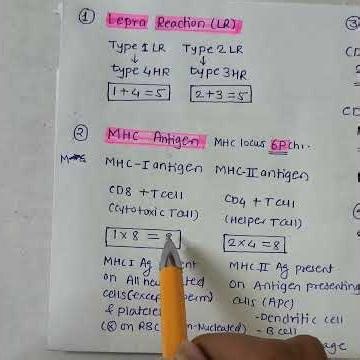 ① Lepra Reaction (LR)
Type 1 LR Type 2 LR
↓ ↓
type 4HR type 3HR
1+4=5 2+3=5
② MHC Antigen MHC locus 6P chr.
MHC-I antigen MHC-II antigen
CD8 + T cell CD4 + T cell
(Cytotoxic T cell) (Helper T cell)
1×8=8 2×4=8
MHC I Ag MHC II Ag present
on All on Antigen presenting
cells (except cells (APC)
& platelets - Dendritic cell
on RBC - B cell
③
CD
CD